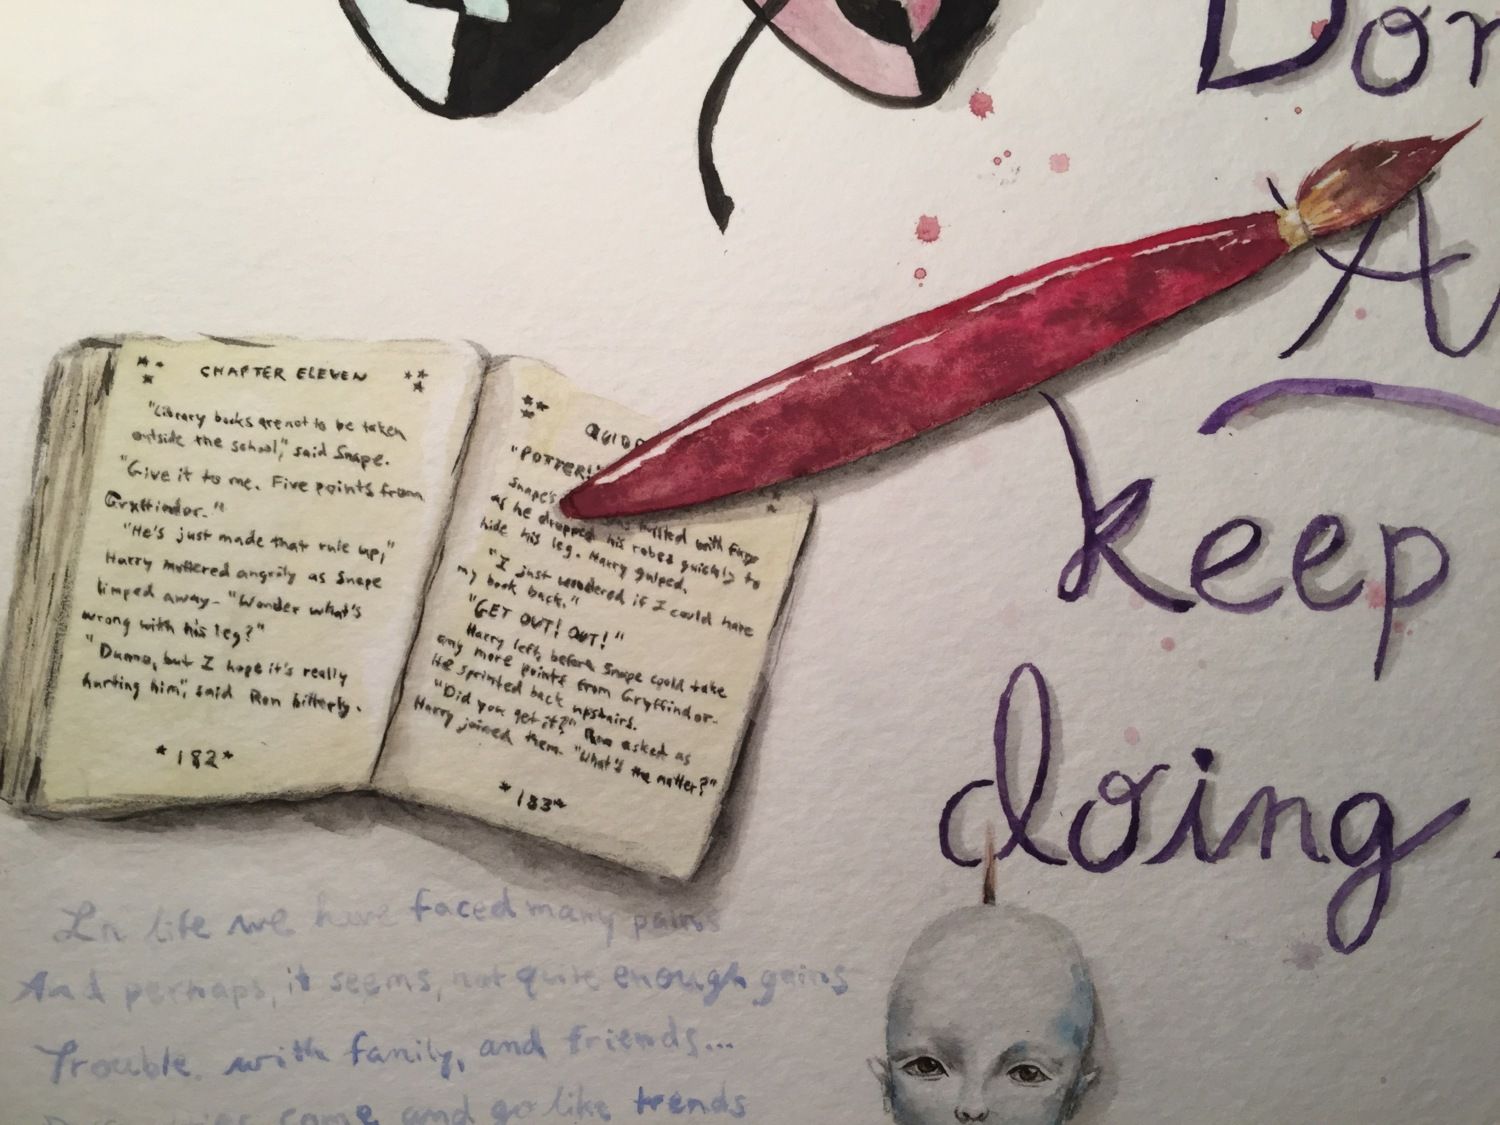 CHAPTER ELEVEN
"Library books are not to be taken
outside the school," said Snape.
"Give it to me. Five points from
Gryffindor."
"He's just made that rule up,"
Harry muttered angrily as Snape
limped away. "Wonder what's
wrong with his leg?"
"Dunno, but I hope it's really
hurting him," said Ron bitterly.
*182*
QUIDD
"POTTER!"
Snape's
twisted with fury
as he dropped his robes quickly to
hide his leg. Harry gulped.
"I just wondered if I could have
my book back."
"GET OUT! OUT!"
Harry left, before Snape could take
any more points from Gryffindor.
He sprinted back upstairs.
"Did you get it?" Ron asked as
Harry joined them. "What's the matter?"
*183*
Don
A
keep
doing
In life we have faced many pains
And perhaps, it seems, not quite enough gains
Trouble with family, and friends...
come and go like trends